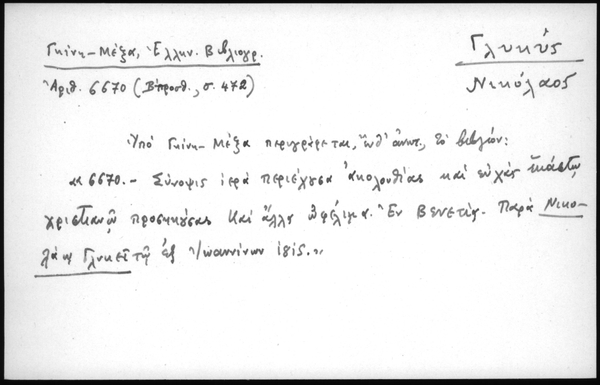 Γκίνη-Μέξα, Ἑλλην. Βιβλιογρ.
Ἀριθ. 6670 (Β΄ προσθ., σ. 472)
Γλυκύς
Νικόλαος
Ὑπό Γκίνη-Μέξα περιγράφεται, τό βιβλίον:
«6670.- Σύνοψις ἱερά περιέχουσα ἀκολουθίας καί εὐχάς ἑκάστῳ
χριστιανῷ προσηκούσας καί ἄλλα ὠφέλιμα. Ἐν Βενετίᾳ. Παρά Νικο-
λάῳ Γλυκεῖ τῷ ἐξ Ἰωαννίνων